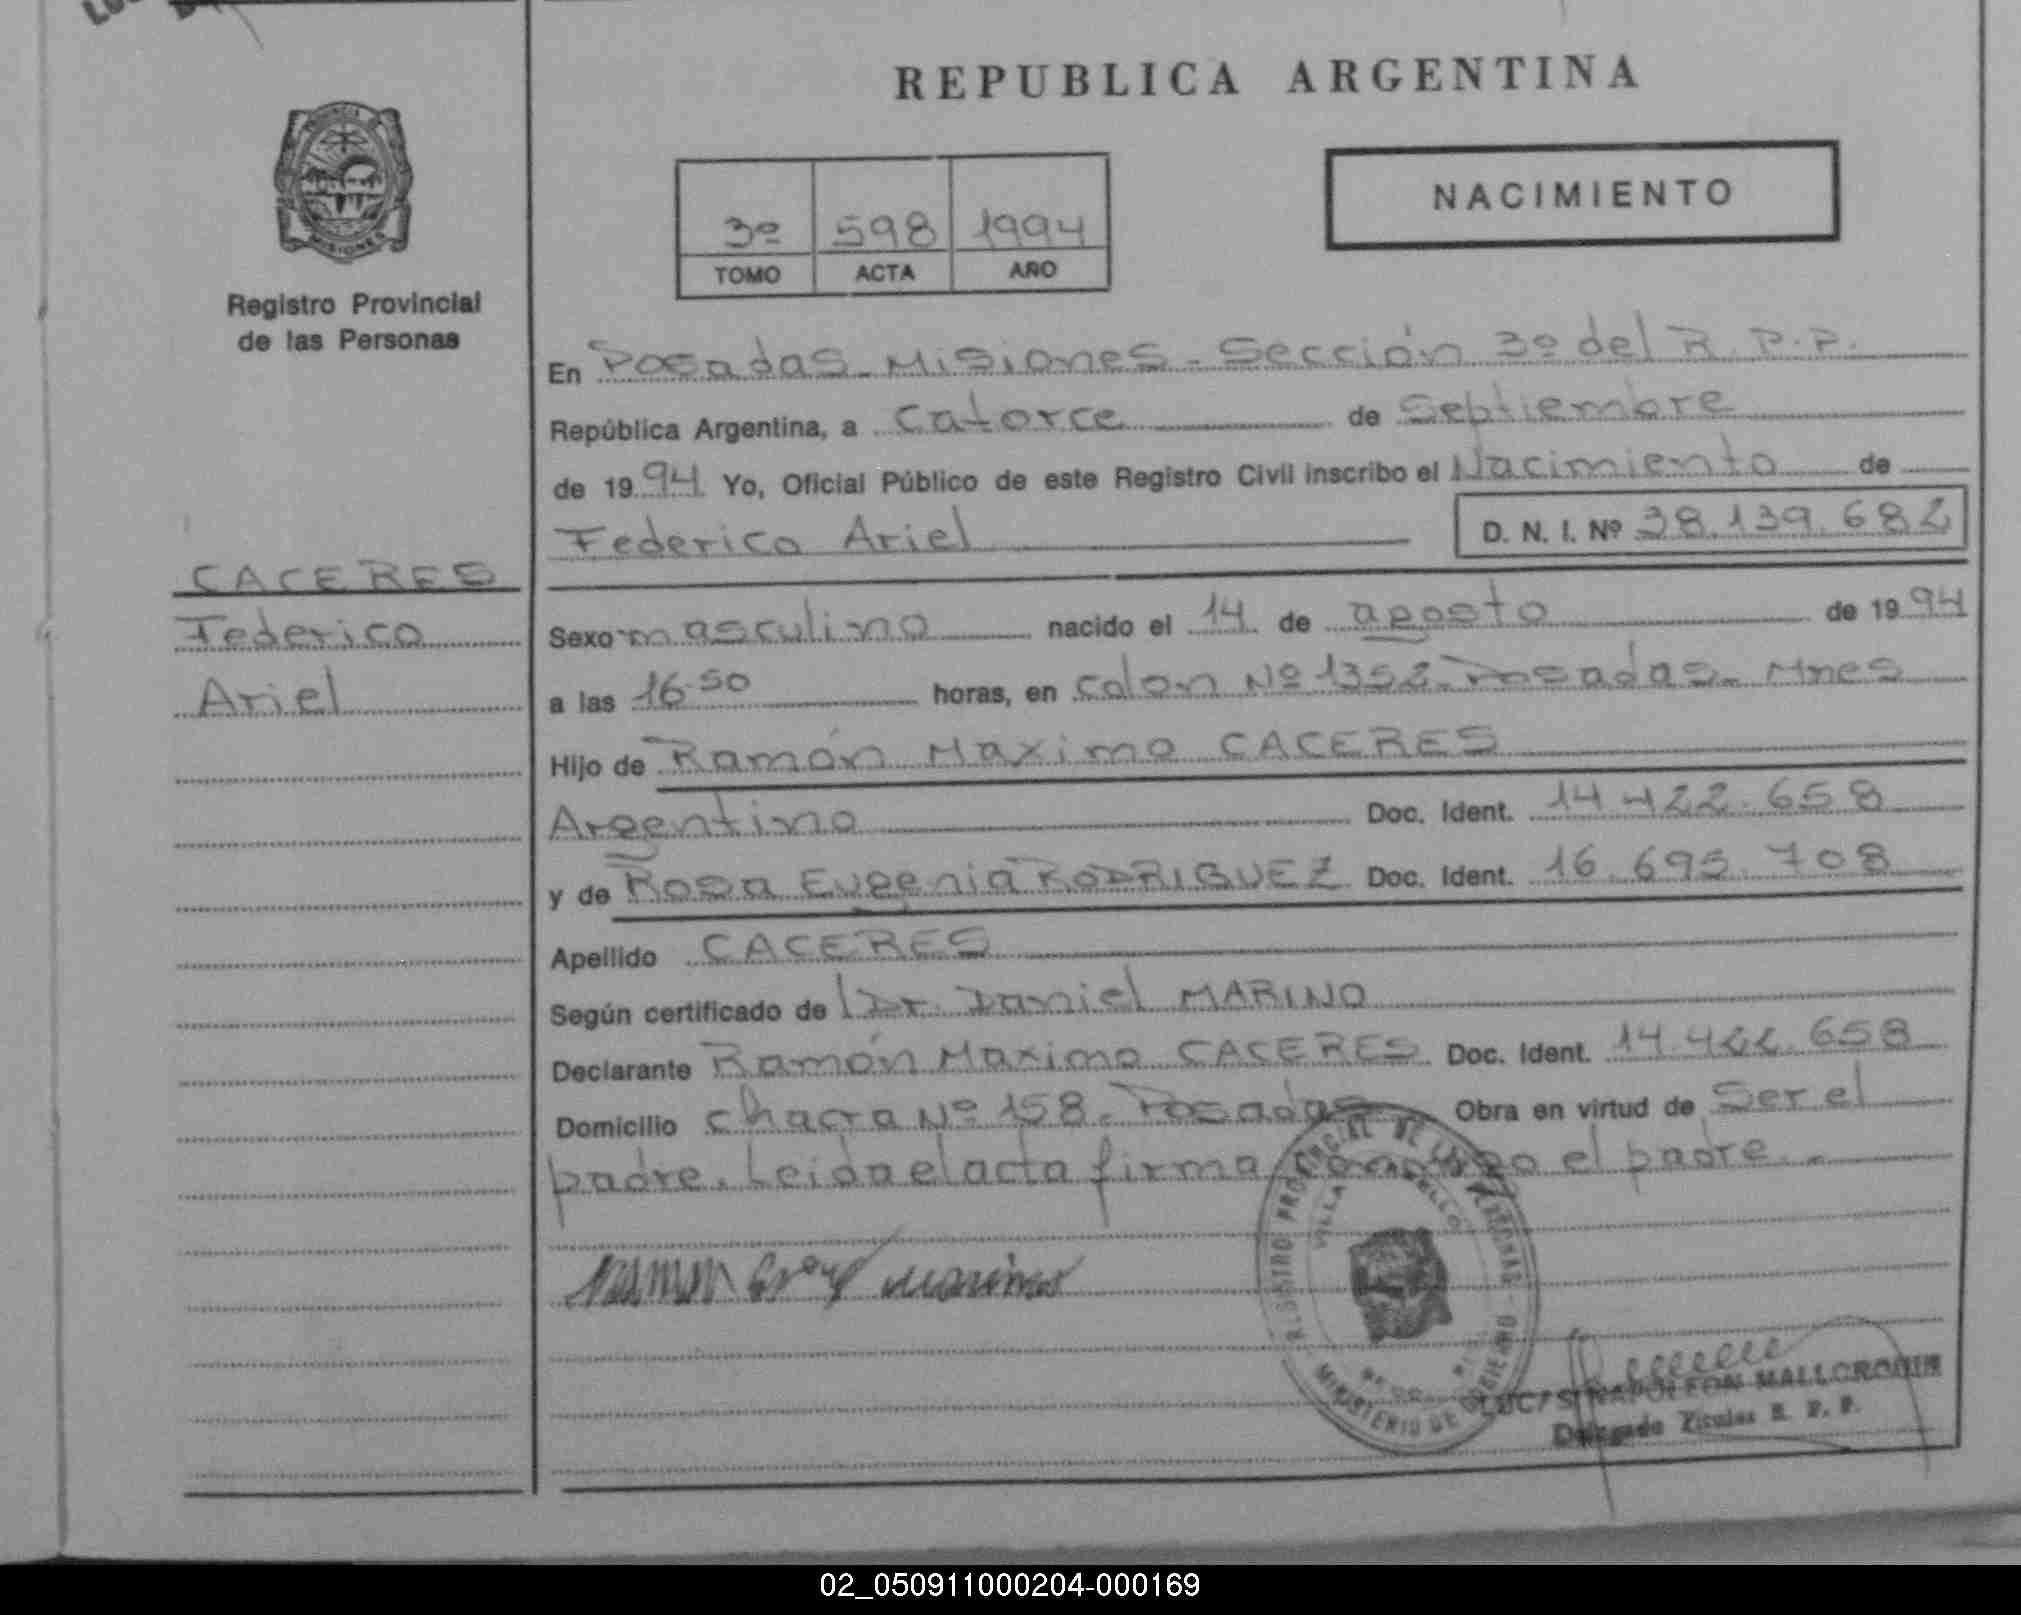 REPUBLICA ARGENTINA
NACIMIENTO
3º 598 1994
TOMO ACTA AÑO
Registro Provincial
de las Personas
CACERES
Federico
Ariel
En Posadas - Misiones - Sección 3º del R.P.P.
República Argentina, a catorce de Septiembre
de 1994 Yo, Oficial Público de este Registro Civil inscribo el Nacimiento de
Federico Ariel D. N. I. Nº 38.139.682
Sexo masculino nacido el 14 de agosto de 1994
a las 16 50 horas, en colon Nº 1352 - Posadas - Mnes
Hijo de Ramón Maximo CACERES
Argentino Doc. Ident. 14.422.658
y de Rosa Eugenia RODRIGUEZ Doc. Ident. 16.695.708
Apellido CACERES
Según certificado de l Dr. Daniel MARINO
Declarante Ramón Maximo CACERES Doc. Ident. 14.422.658
Domicilio chacra Nº 158 - Posadas Obra en virtud de Ser el
padre. Leida el acta firma conmigo el padre. -
REGISTRO PROVINCIAL DE LAS PERSONAS
VILLA
MINISTERIO DE GOBIERNO
NAPOLEON MALLORQUIN
Delegado Titular R. P. P.
02_050911000204-000169